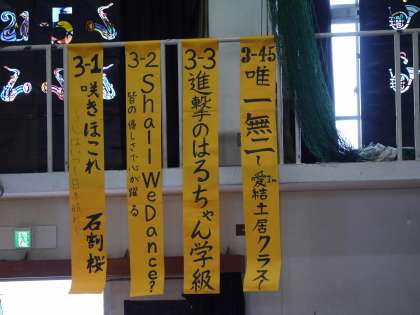 3-1
咲きほこれ
石割桜
3-2
Shall We Dance?
皆の優しさで心が躍る
3-3
進撃のはるちゃん学級
3-45
唯一無二
～愛結土居クラス～
I'm